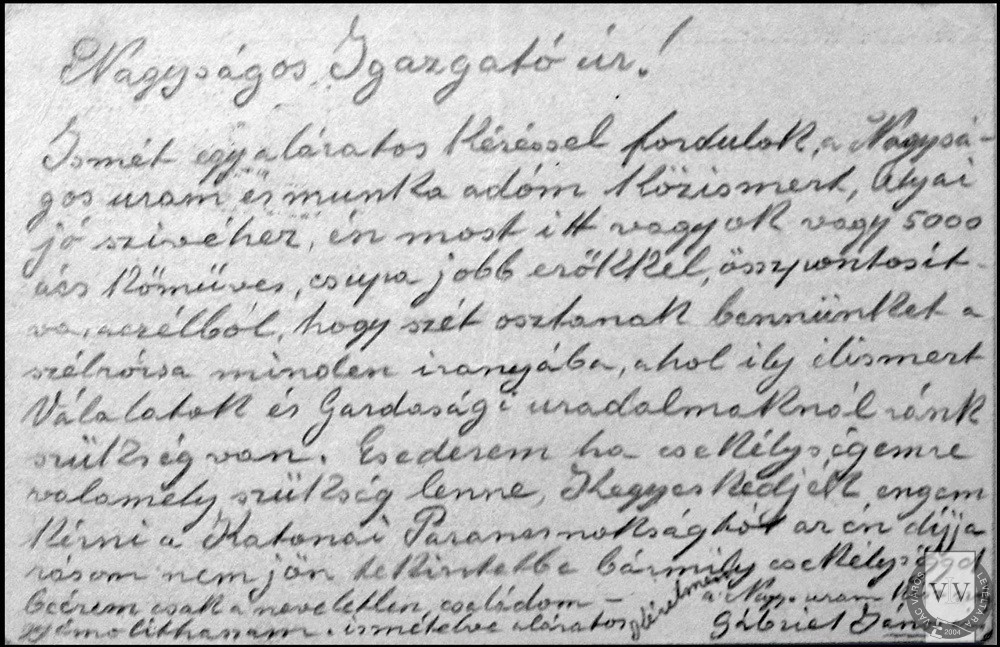 Nagyságos Igazgató úr!
Ismét egy aláratos Kéréssel fordulok, a Nagysá-
gos uram és munka adóm Közismert, Atyai
jó szivéhez, én most itt vagyok vagy 5000
ács Kőműves, csupa jobb erőkkel, összpontosit-
va, aczélból, hogy szét osztanak bennünket a
szélrózsa minden irányába, ahol ily elismert
Válalatok és Gardasági uradalmaknál ránk
szükség van. Esederem ha csekélységemre
valamely szükség lenne, Kegyeskedjék engem
Kérni a Katonai Parancsnokságtól az én díjja
zásom nem jön tekintetbe bármily csekélységgel
beérem csak a neveletlen családom-
gyámolithassam. ismételve aláratos
a Nagys. uram
Gábriel
VÁG VÁROS LEVÉLTÁRA
VV
2004